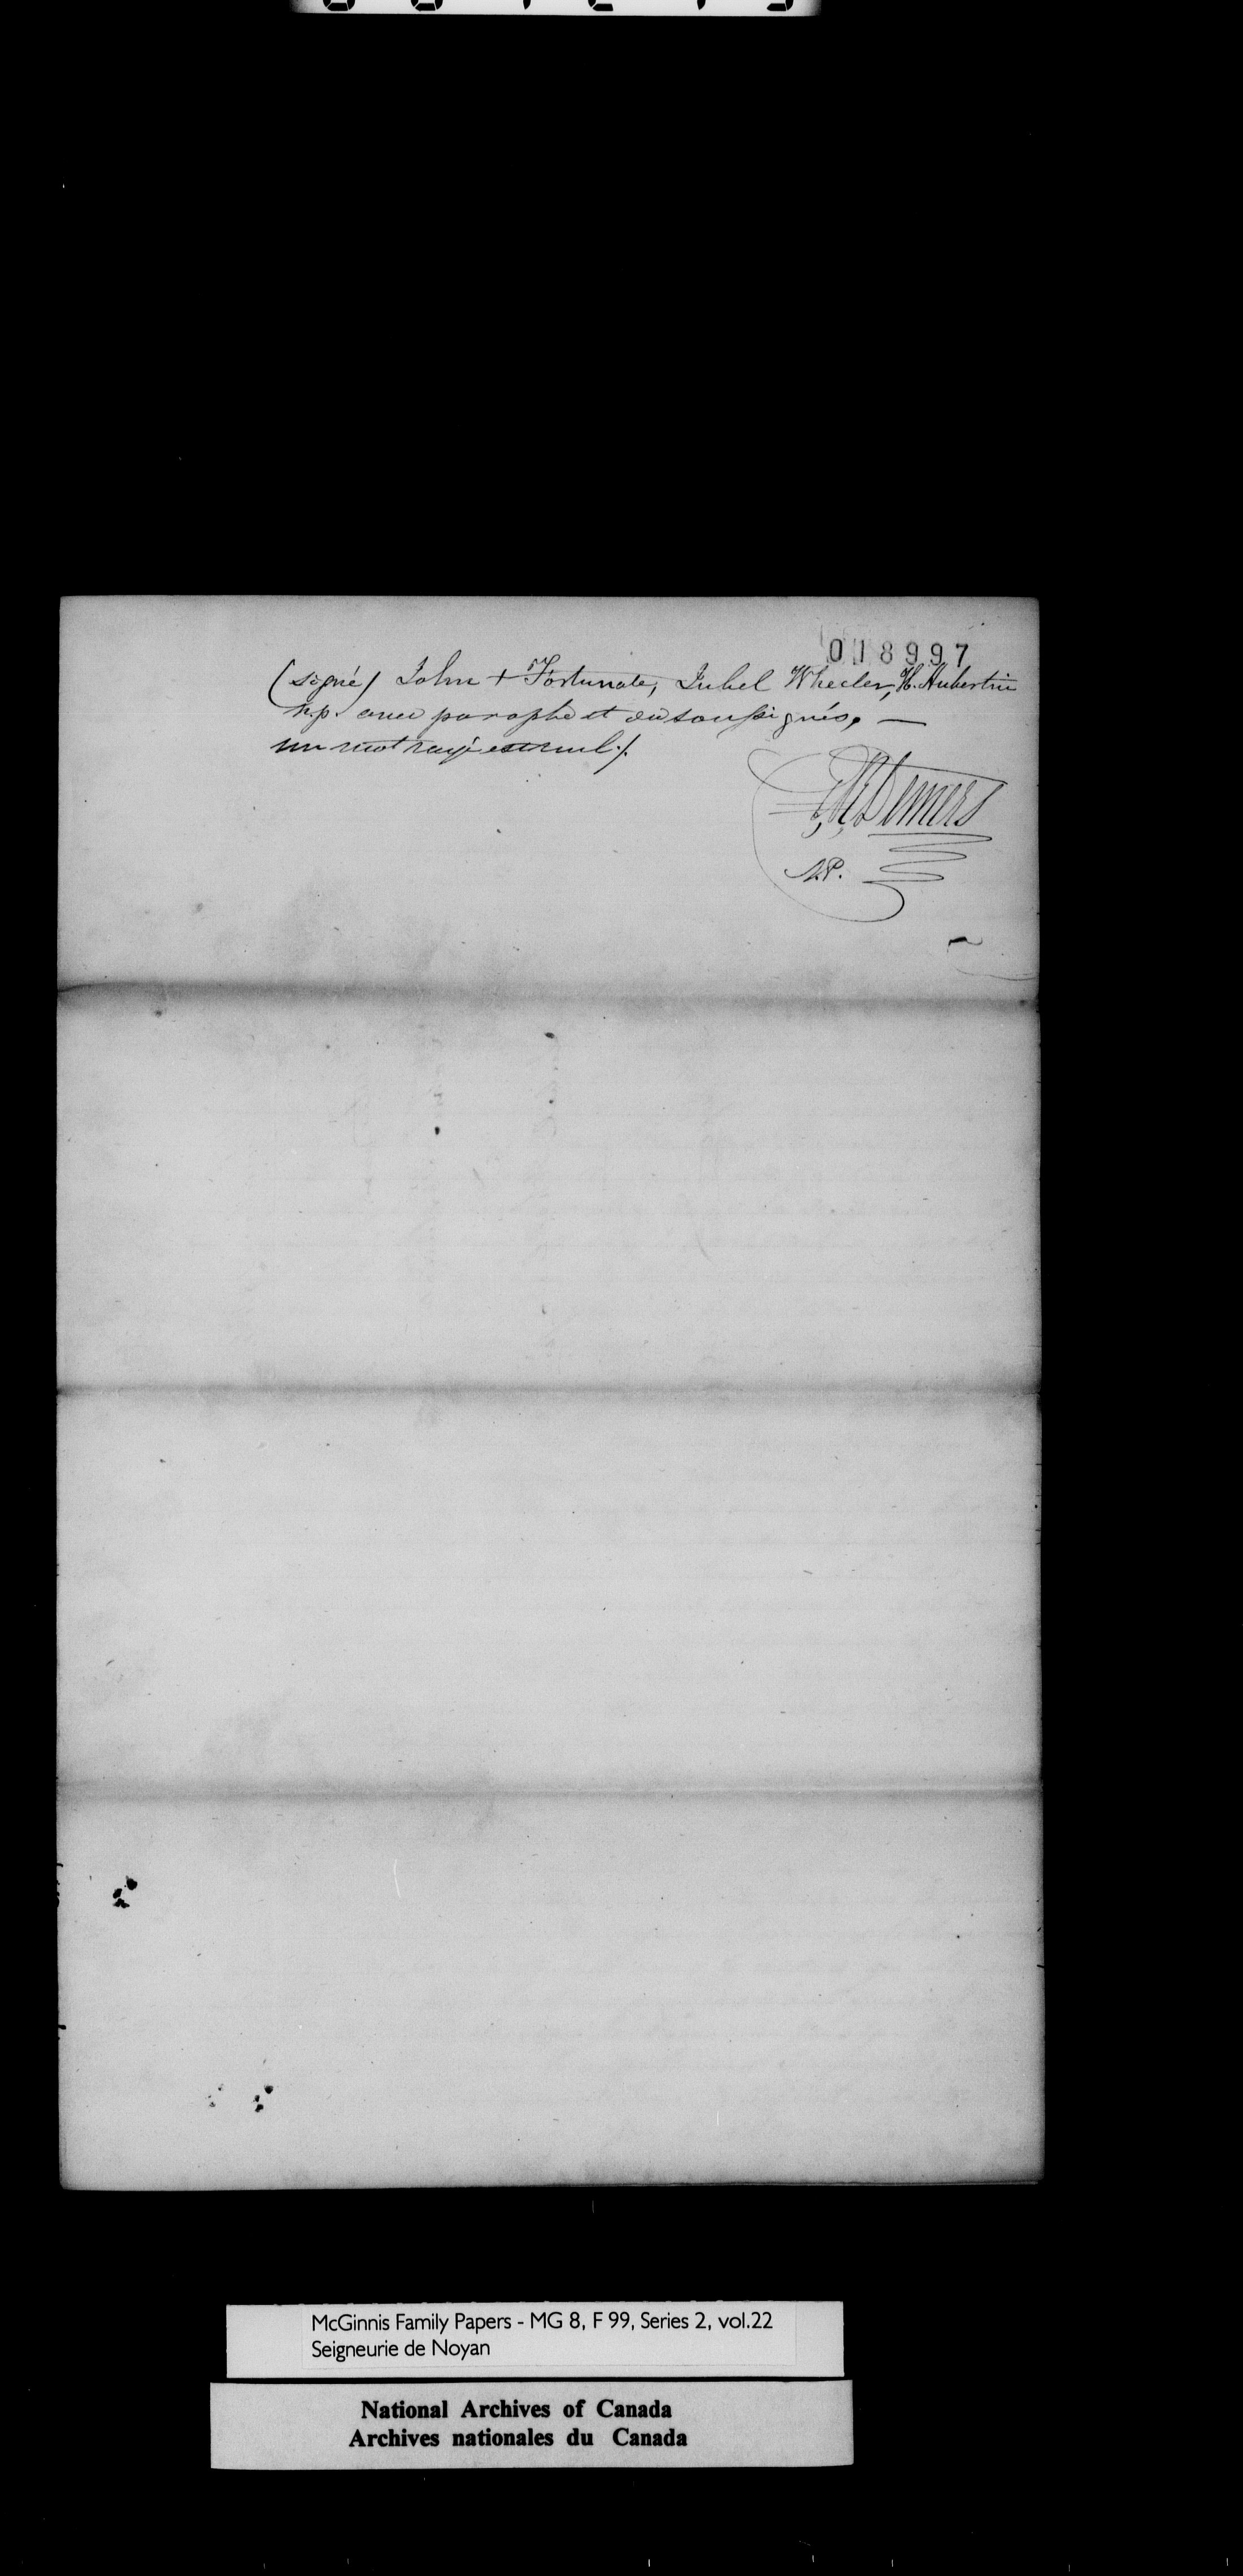 018997
(signé) John + Fortunate, Jubel Wheeler, H. Aubertin
n.p. avec paraphe et du soussignés. —
un mot rayé est nul./.
Demers
N.P.
McGinnis Family Papers - MG 8, F 99, Series 2, vol.22
Seigneurie de Noyan
National Archives of Canada
Archives nationales du Canada